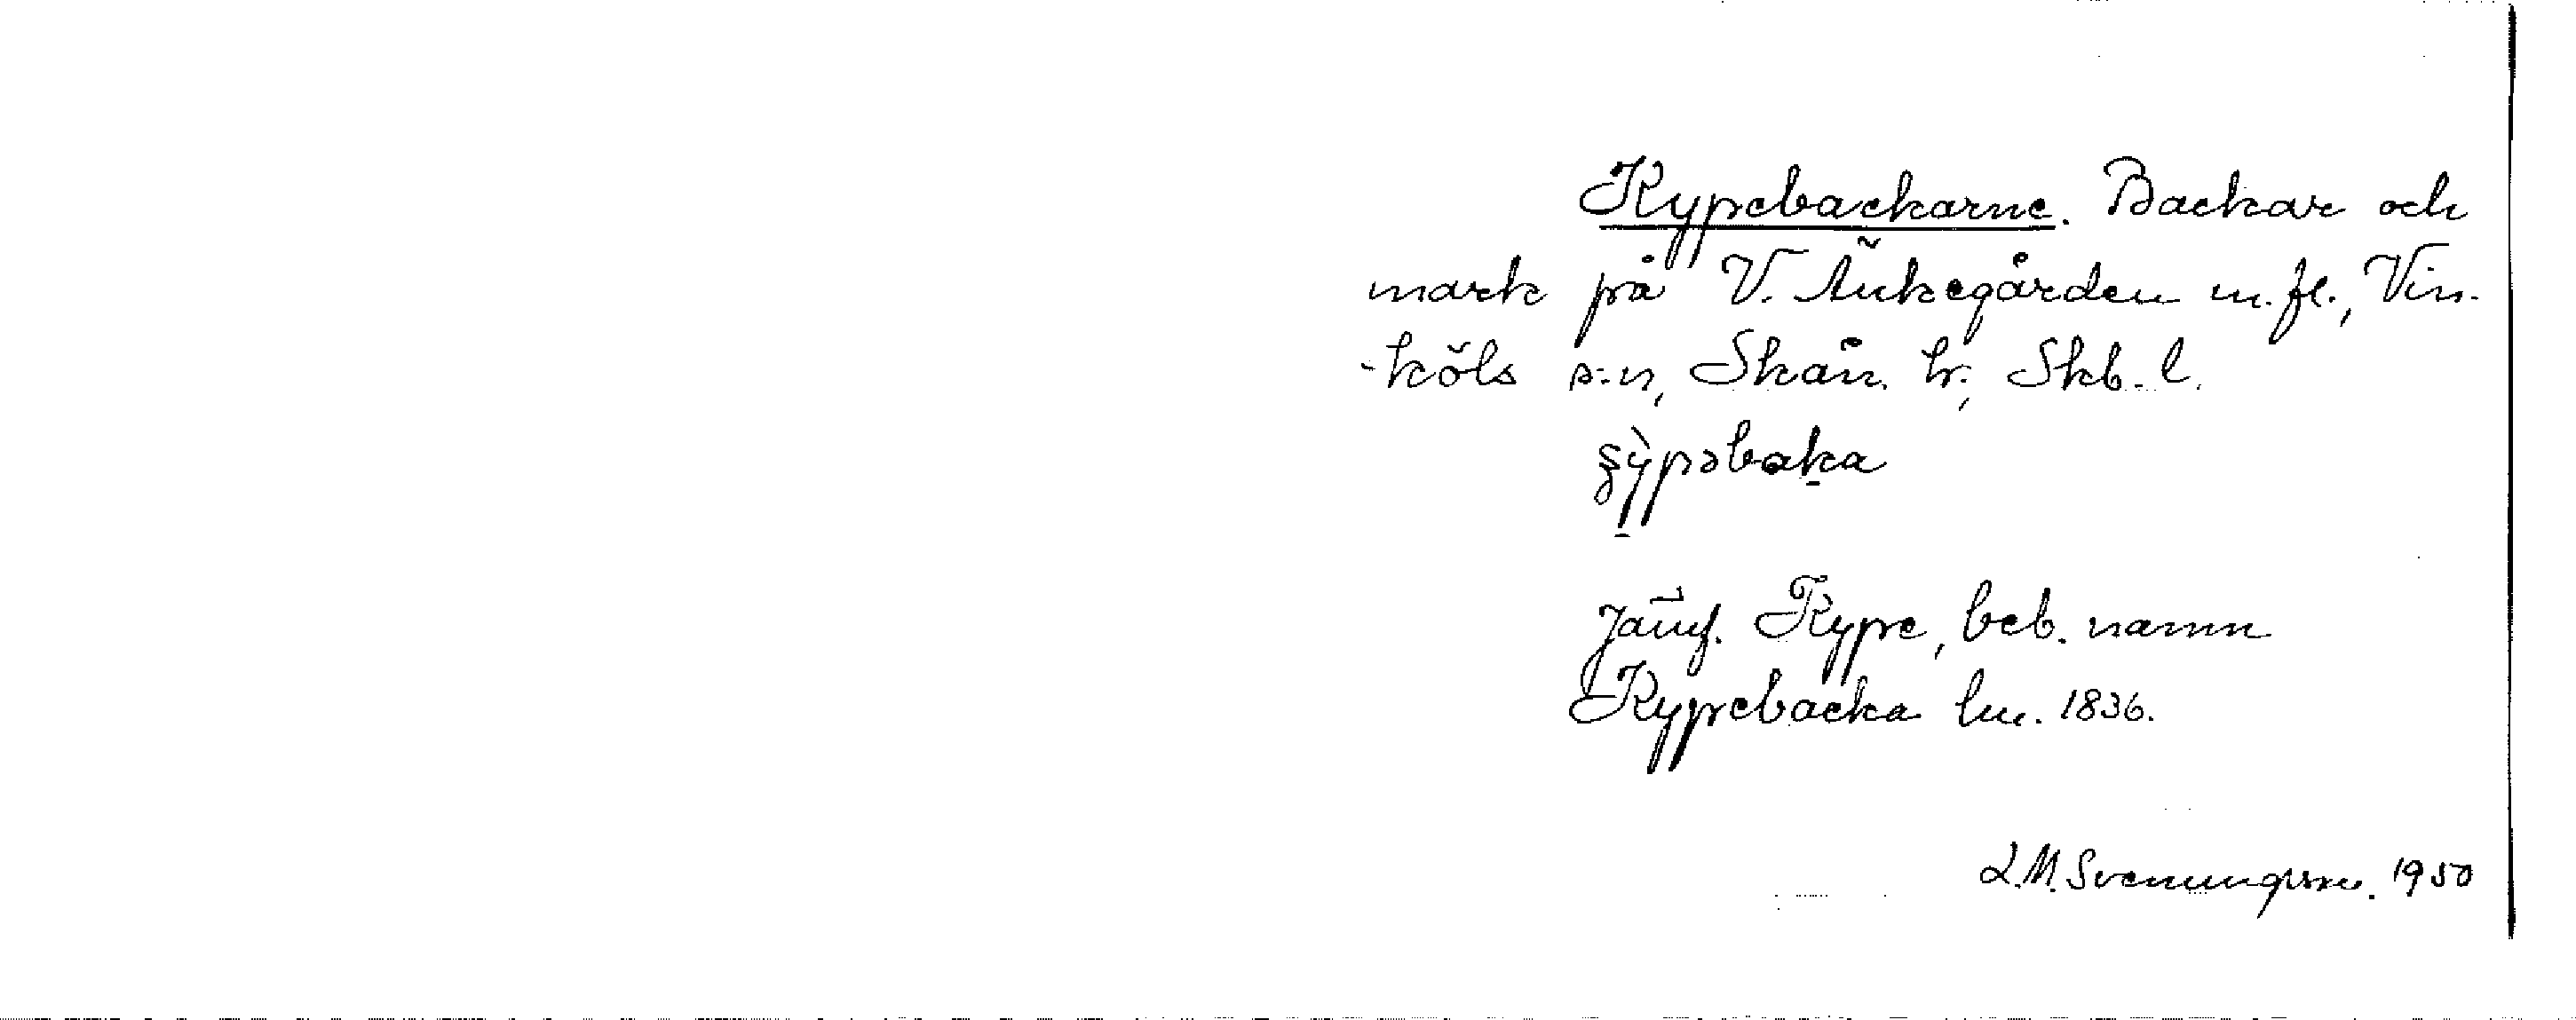 Kypebackarne. Backar och
mark på V. Änkegården m.fl., Vin-
-köls s:n, Skån. hr; Skb. l.
Jämf. Kype, beb. namn
Kypebacka lm. 1836.
L.M. Svenungsson. 1950